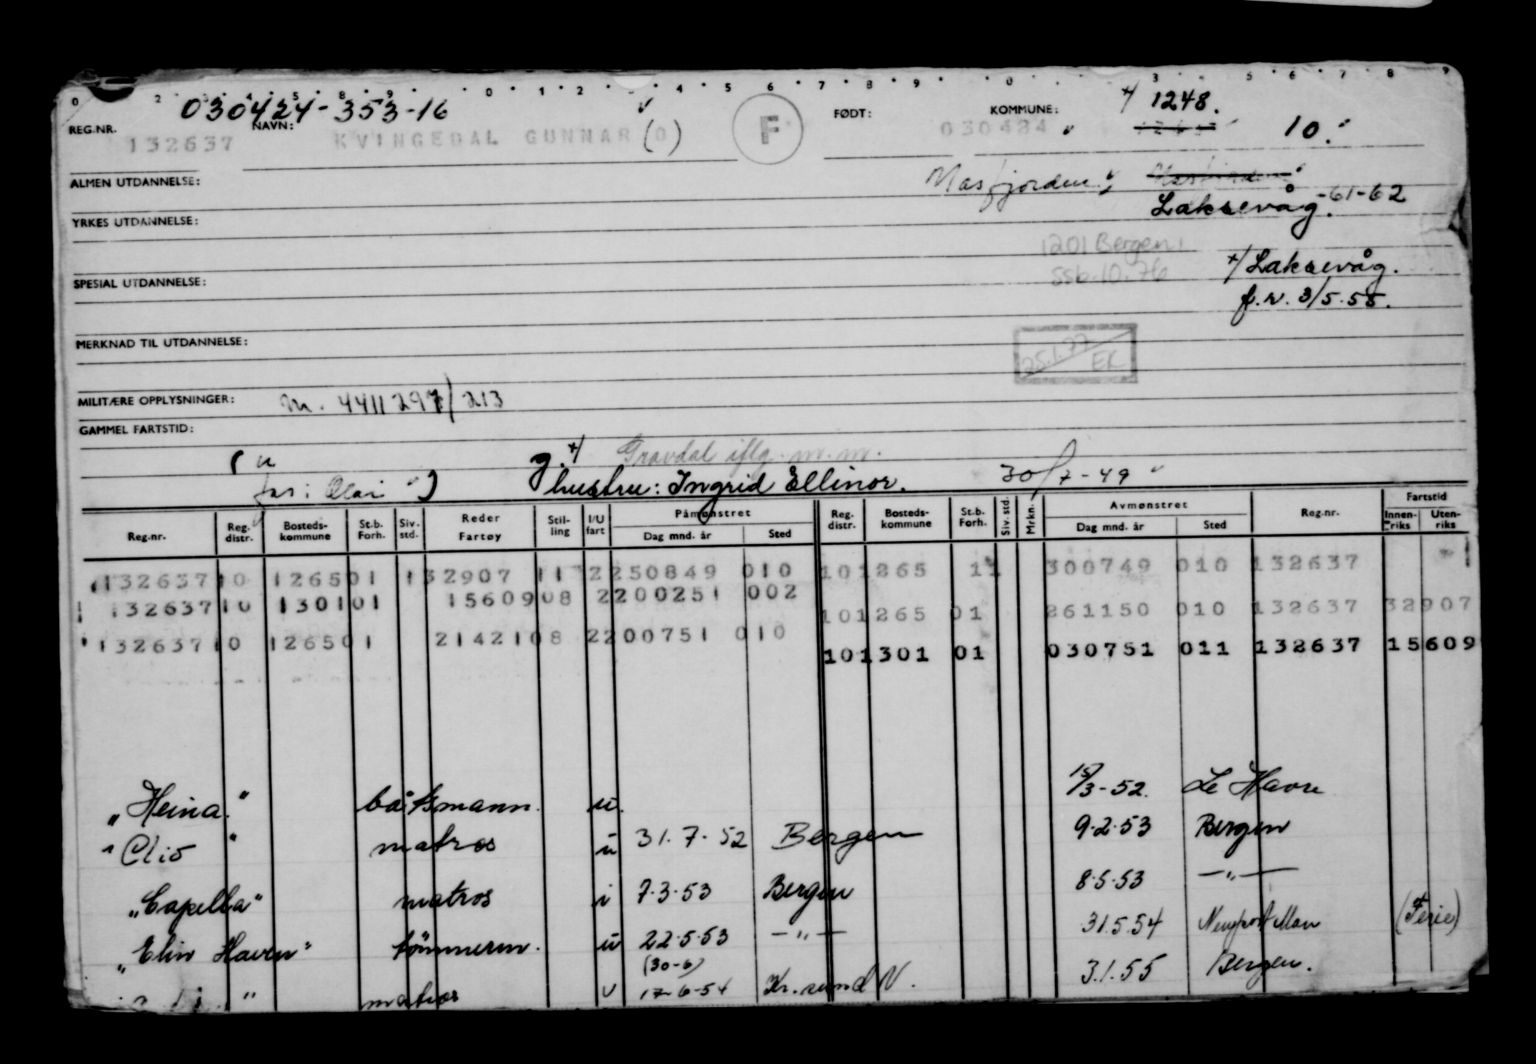 030424-353-16
REG.NR. 132637 NAVN: KVINGEDAL GUNNAR (O) F FØDT: 030424 KOMMUNE: +/ 1248. 10.
ALMEN UTDANNELSE: Masfjorden
YRKES UTDANNELSE: Laksevåg. -61-62
1201 Bergen
SPESIAL UTDANNELSE: ssb. 10. 76 +/ Laksevåg.
f.r. 3/5.55.
MERKNAD TIL UTDANNELSE: 25.1.77 EK
MILITÆRE OPPLYSNINGER: m. 4411297/213
GAMMEL FARTSTID:
g. +/ Gravdal iflg. m.m.
far: Olai hustru: Ingrid Ellinor. 30/7-49
Reg.nr. Reg. distr. Bosteds- kommune St.b. Forh. Siv. std. Reder Fartøy Stil- ling I/U fart Påmønstret Dag mnd. år Sted Reg. distr. Bosteds- kommune St.b. Forh. Siv. std. Mrkn. Avmønstret Dag mnd. år Sted Reg.nr. Fartstid Innen- riks Uten- riks
132637 10 1265 01 132907 11 2 250849 010 10 1265 11 300749 010 132637
132637 10 1301 01 15609 08 2 200251 002 10 1265 01 261150 010 132637 32907
132637 10 1265 01 21421 08 2 200751 010 10 1301 01 030751 011 132637 15609
"Heina" båtsmann. u. 15/3-52. Le Havre
"Clio" matros u 31.7.52 Bergen 9.2.53 Bergen
"Capella" matros i 7.3.53 Bergen 8.5.53 —"—
"Elin Haven" tömmerm. u 22.5.53 —"— 31.5.54 Newport Mon (Ferie)
(30-6)
" matros u 17-6-54 Kr.sund N. 3.1.55 Bergen.